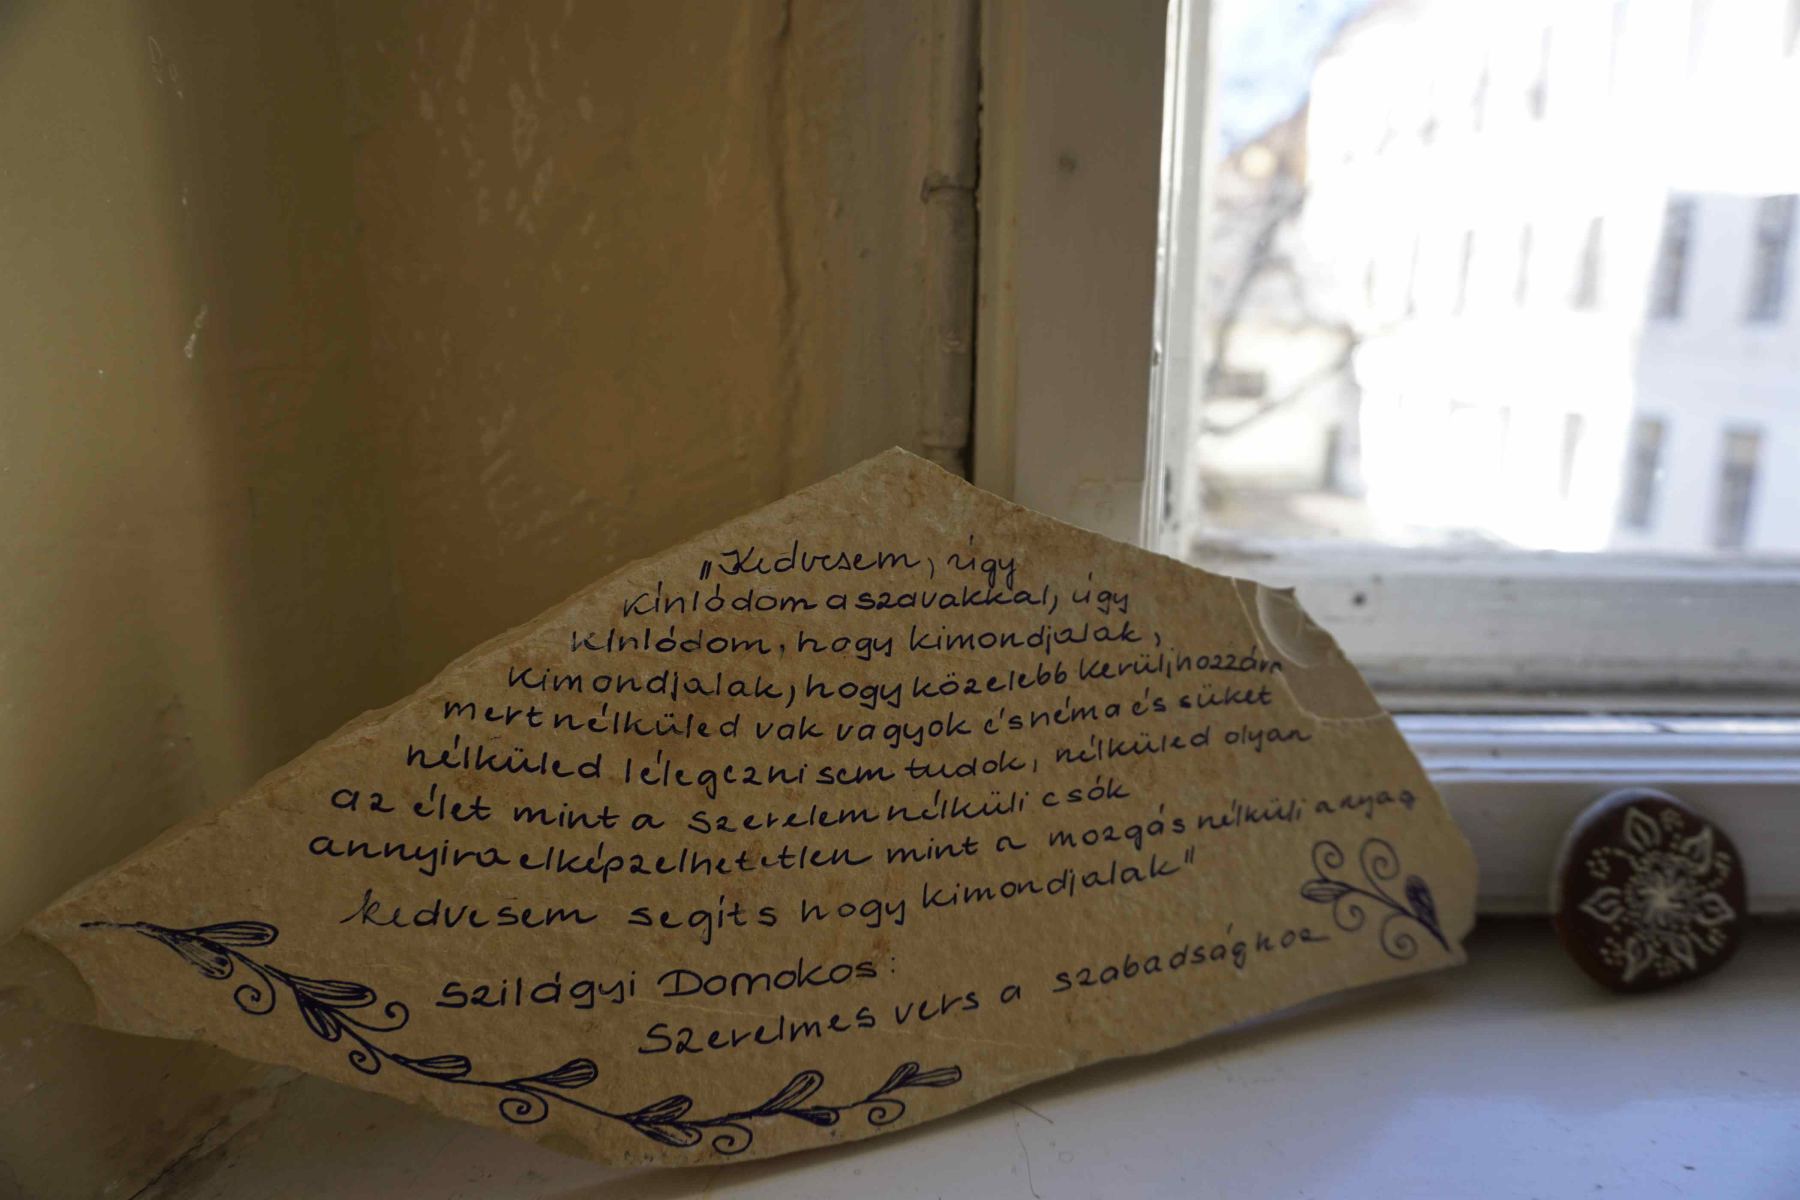 „Kedvesem, úgy
kínlódom a szavakkal, úgy
kínlódom, hogy kimondjalak,
kimondjalak, hogy közelebb kerülj hozzám
mert nélküled vak vagyok és néma és süket
nélküled lélegezni sem tudok, nélküled olyan
az élet mint a szerelem nélküli csók
annyira elképzelhetetlen mint a mozgás nélküli anyag
kedvesem segíts hogy kimondjalak"
Szilágyi Domokos:
Szerelmes vers a szabadsághoz